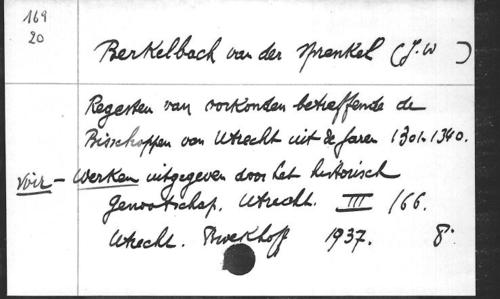 169
20
Berkelbach van der Sprenkel (J.W )
Regesten van oorkonden betreffende de
Bisschoppen van Utrecht uit de jaren 1301-1340.
voir - Werken uitgegeven door het historisch
genootschap. Utrecht. III /66.
Utrecht. Broekhoff 1937. 8°